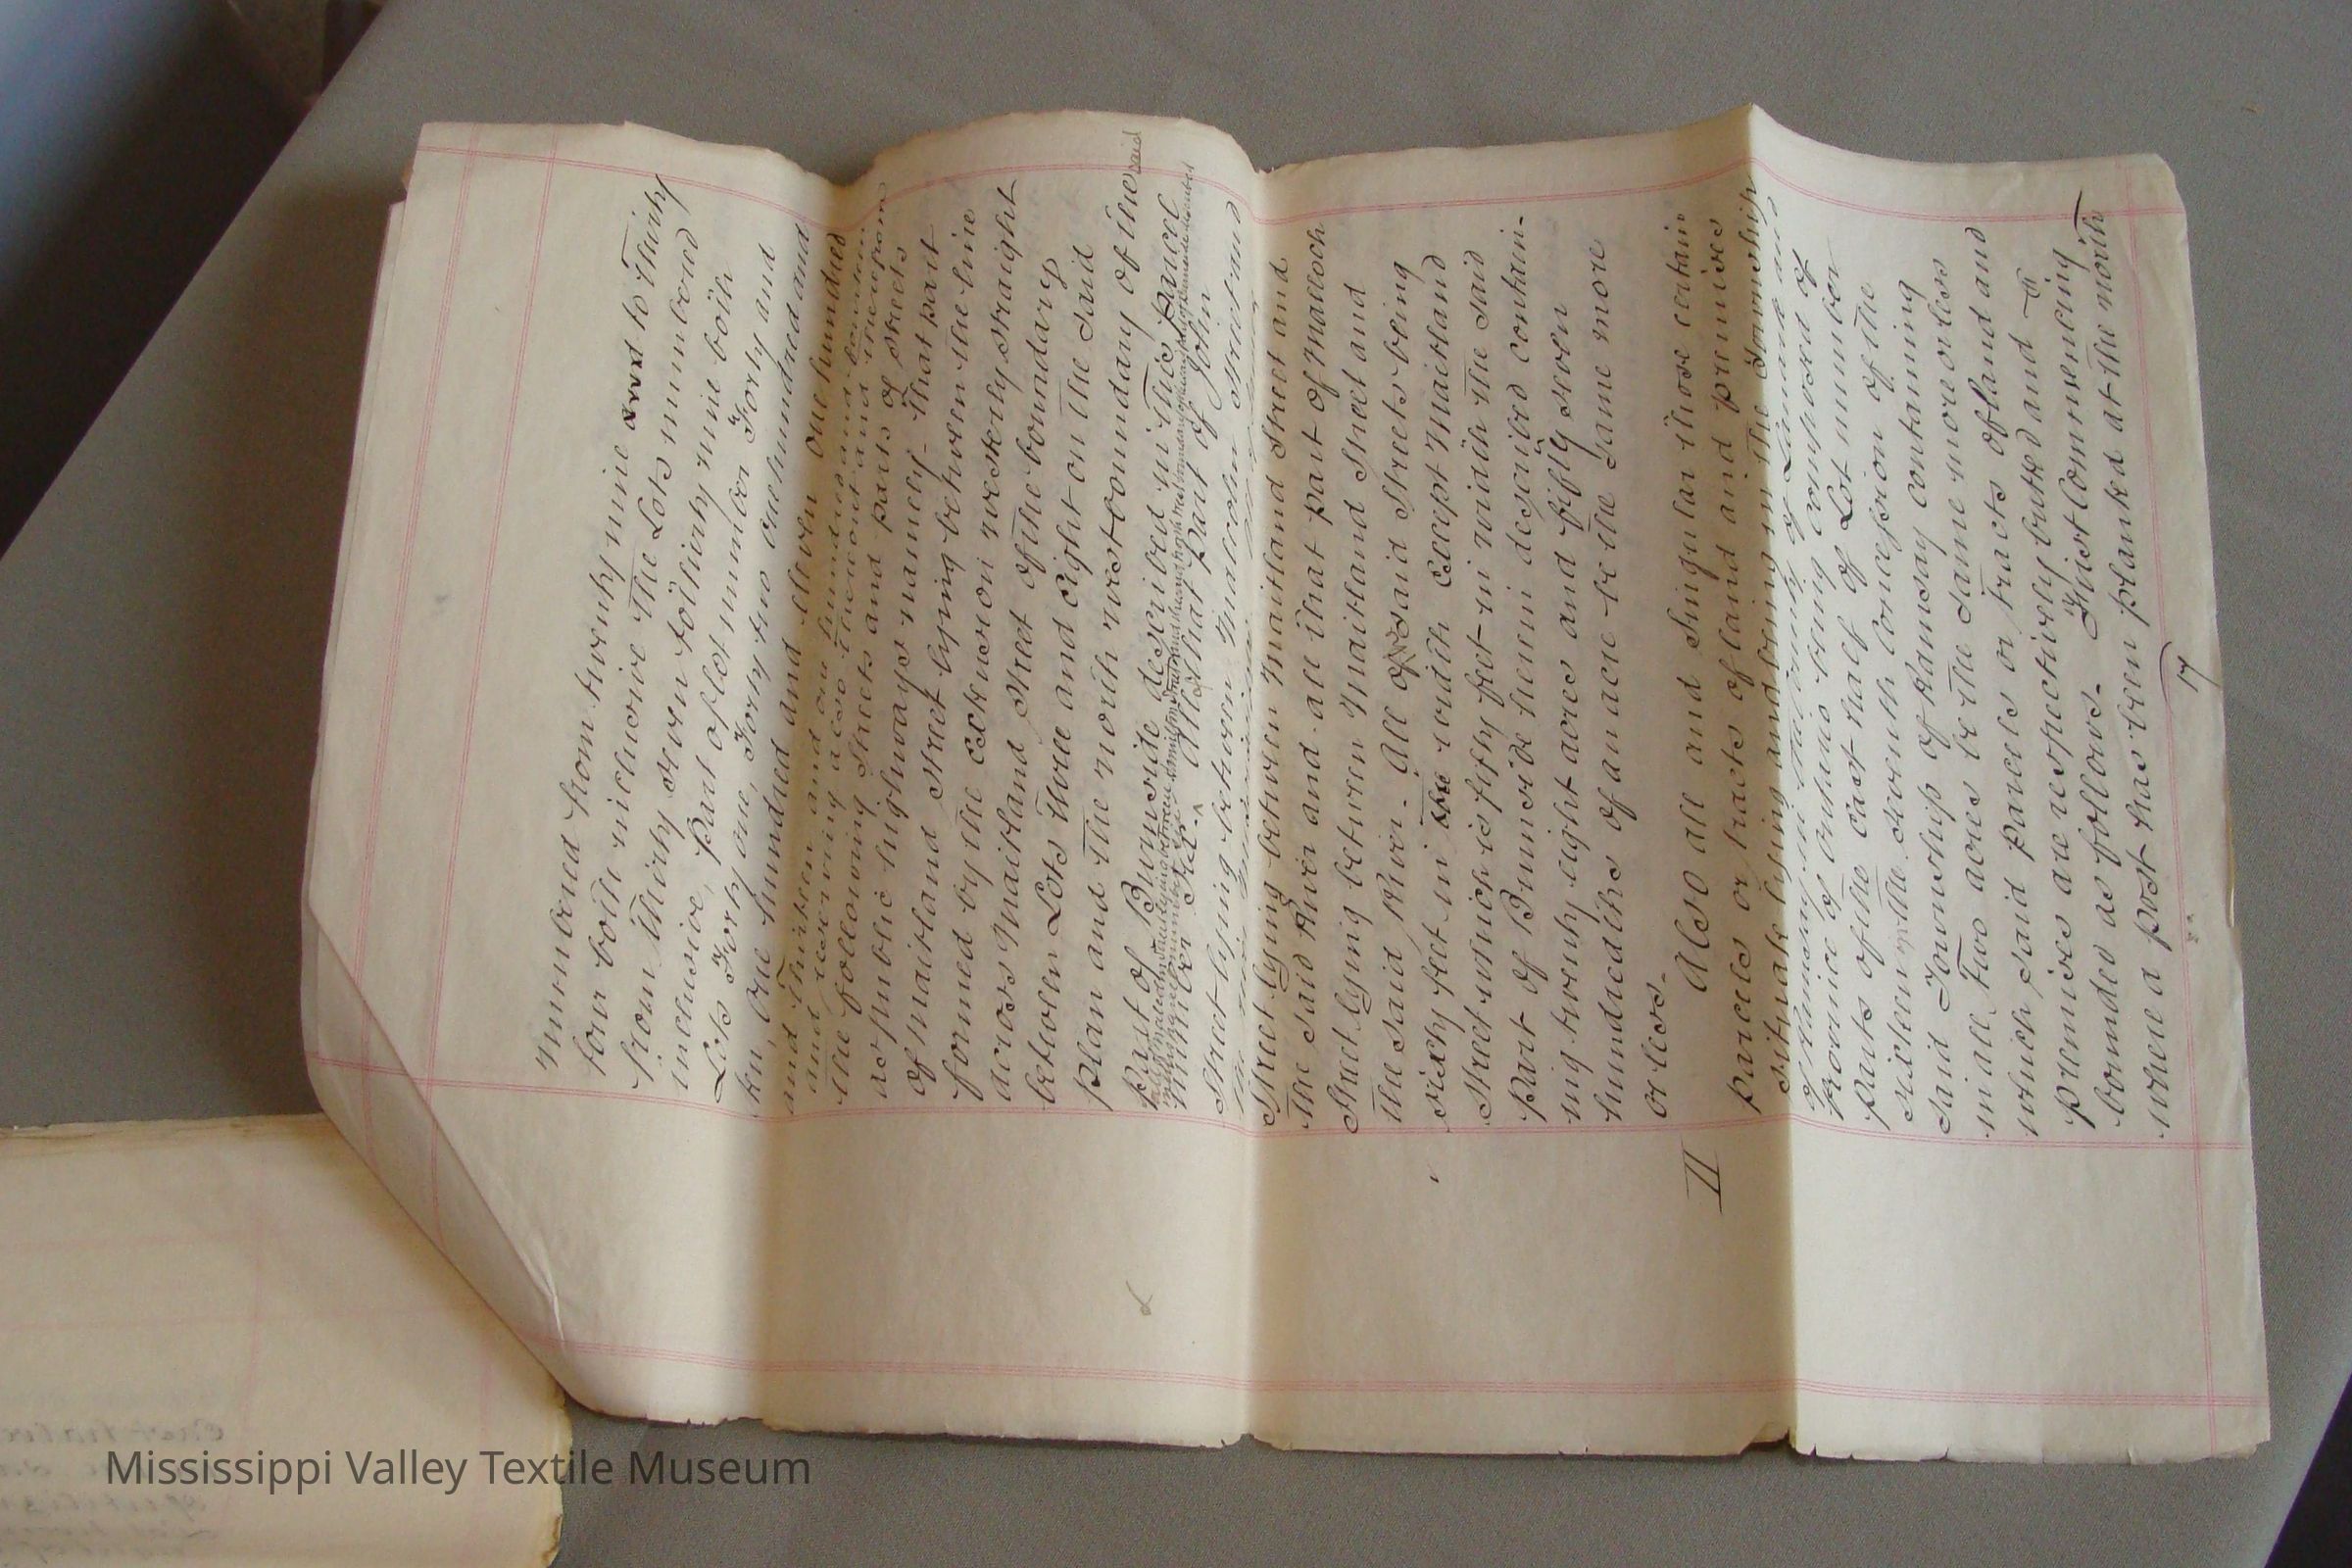 numbered from twenty nine and to thirty
four both inclusive The Lots numbered
from thirty seven to thirty nine both
inclusive, Part of Lot number Forty and
Lots Forty one, Forty two one hundred and
ten, one hundred and eleven one hundred
and thirteen and one hundred and fourteen
and reserving also thereout and therefrom
the following streets and parts of streets
as public highways namely- that part
of Maitland Street lying between the line
formed by the extension westerly straight
across Maitland Street of the boundary
between Lots three and eight on the said
plan and the north west boundary of the said
Part of Burnside described in this parcel
number Six. All that Part of John
Street lying between Malcolm street and
Street lying between Maitland Street and
the said River and all that part of Malloch
Street lying between Maitland Street and
the said River. All of said Streets being
sixty feet in width except Maitland
Street which is fifty feet in width the said
Part of Burnside herein described contain-
ing twenty eight acres and fifty seven
hundredths of an acre be the same more
or less.
II Also all and Singular those certain
parcels or tracts of land and premises
situate lying and being in the Township
of Ramsay in the County of Lanark and
Province of Ontario being composed of
Parts of the east half of Lot number
sixteen in the seventh Concession of the
said Township of Ramsay containing
in all Two acres be the same more or less
which said parcels or tracts of land and
premises are respectively butted and
bounded as follows. First Commencing
where a post has been planted at the north
17
Mississippi Valley Textile Museum